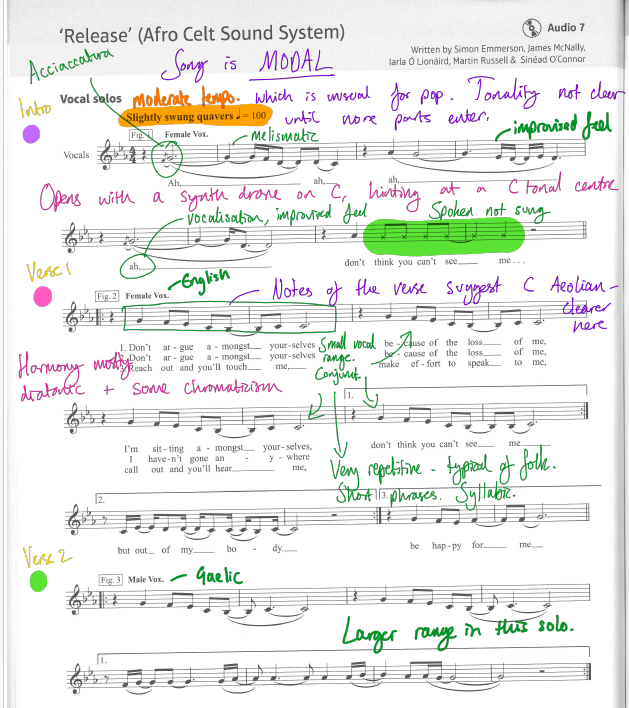 'Release' (Afro Celt Sound System)
Audio 7
Written by Simon Emmerson, James McNally,
Iarla Ó Lionáird, Martin Russell & Sinéad O'Connor
Acciaccatura
Song is MODAL
Intro
Vocal solos
moderate tempo. which is unusual for pop. Tonality not clear
until more parts enter.
Slightly swung quavers ♩ = 100
Fig. 1
Female Vox.
melismatic
improvised feel
Vocals
Ah, ah, ah,
Opens with a synth drone on C, hinting at a C tonal centre
vocalisation, improvised feel
Spoken not sung
ah, don't think you can't see me...
Verse 1
English
Fig. 2
Female Vox.
Notes of the verse suggest C Aeolian -
clearer
here
1. Don't ar - gue a - mongst your-selves be - cause of the loss of me,
Don't ar - gue a - mongst your-selves be - cause of the loss of me,
Reach out and you'll touch me, make ef - fort to speak to me,
Small vocal
range.
Conjunct.
Harmony mostly
diatonic + some chromaticism
1.
I'm sit - ting a - mongst your-selves, don't think you can't see me.
I have-n't gone an - y - where
call out and you'll hear me,
Very repetitive - typical of folk.
Short phrases. Syllabic.
2.
3.
but out of my bo - dy. be hap - py for me
Verse 2
Fig. 3
Male Vox.
- Gaelic
Larger range in this solo.
1.